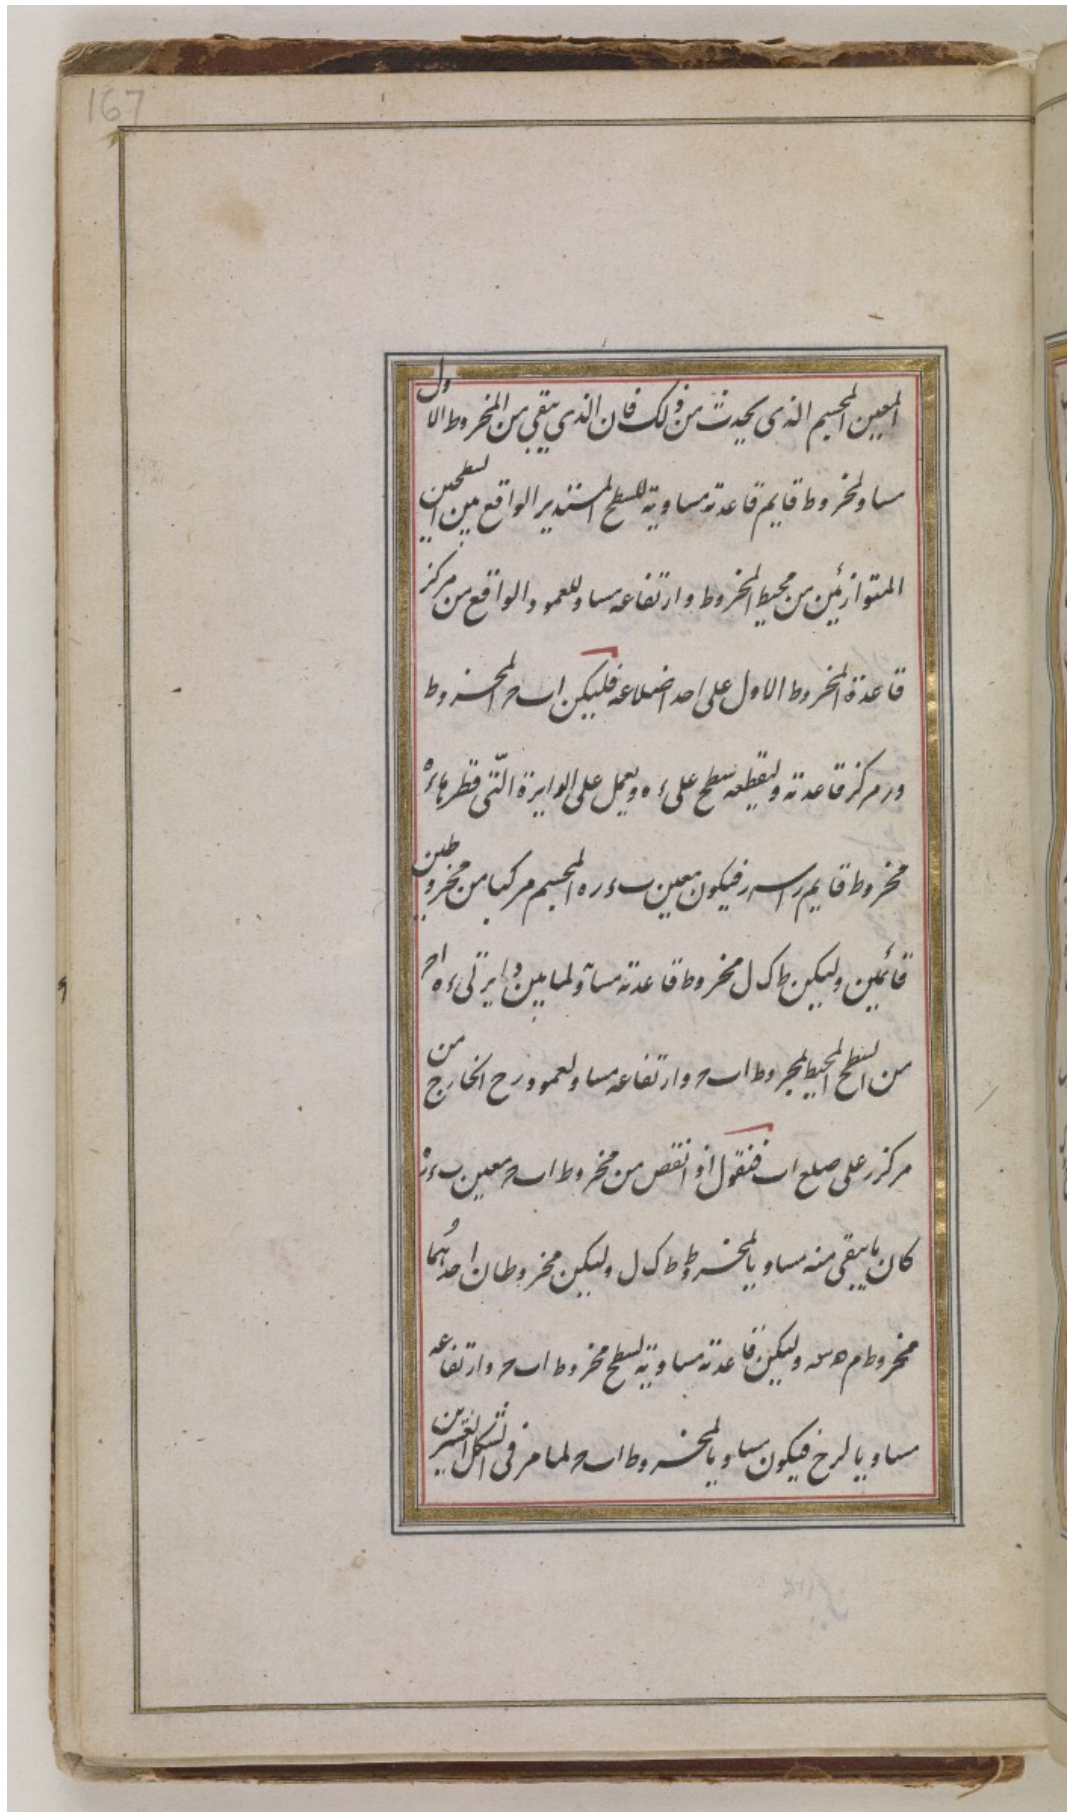 167
المعين المجسم الذى يحدث من ذلك فان الذي يبقي من المخروط الاول
مساو لمخروط قايم قاعدته مساوية للسطح المستدير الواقع بين السطحين
المتوازئين من محيط المخروط وارتفاعه مساو للعمود الواقع من مركز
قاعدة المخروط الاول على احد اضلاعه فليكن اب ح المخروط
ور مركز قاعدته وليقطعه سطح على ءه ويعمل على الدايرة الّتى قطرها ءه
مخروط قايم راسه ر فيكون معين ب ء ر ه المجسم مركبا من مخروطين
قائمين وليكن ط ك ل مخروط قاعدته مساو لما بين دايرتى ءه اح
من السطح المحيط بمخروط اب ح وارتفاعه مساو لعمود رح الخارج من
مركز ر على ضلع اب فنقول اذا نقص من مخروط اب ح معين ب ء ر ه
كان ما يبقى منه مساويا لمخروط ط ك ل وليكن مخروطان احدهما
مخروط م ه سه وليكن قاعدته مساوية لسطح مخروط اب ح وارتفاعه
مساويا لرح فيكون مساويا لمخروط اب ح لما مر فى الشكل العشرين